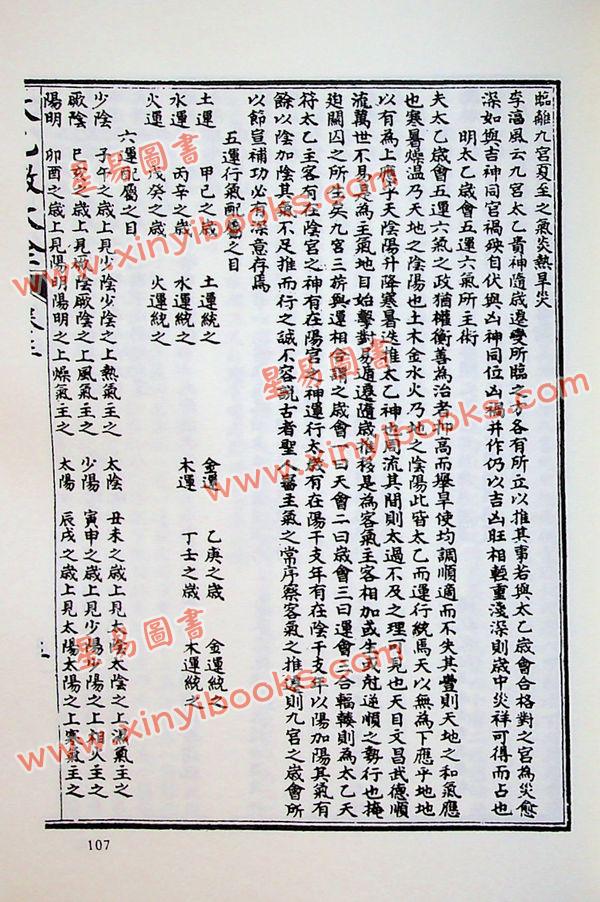 臨離九宮夏至之氣炎熱旱災
李淳風云九宮太乙貴神隨歲遷變所臨之方各有所立以推其事若與太乙歲會合格對之宮為災愈
深如與吉神同宮禍殃自伏與凶神同位凶禍并作仍以吉凶旺相輕重淺深則歲中災祥可得而占也
明太乙歲會五運六氣所主術
夫太乙歲會五運六氣之政猶權衡善為治者抑高而舉卑使均調順適而不失其豐則天地之和氣應
也寒暑燥溫乃天地之陰陽也土木金水火乃地之陰陽此皆太乙而運行統焉天以無為下應乎地地
以有為上應乎天陰陽升降寒暑迭推太乙神也周流其間則太過不及之理可見也天目文昌武德順
流萬世不易真為主氣地目始擊對易遁遷隨歲推移是為客氣主客相加或生或尅逆順之勢行也掩
迫關囚之所生矣九宮三㪷與運相合謂之歲會一曰天會二曰歲會三曰運會三合輻輳則為太乙天
符太乙主客有在陰宮之神有在陽宮之神運行太歲有在陽干支年有在陰干支年以陽加陽其氣有
餘以陰加陰其氣不足推而行之誠不容説古者聖人醫主氣之常序察客氣之推遷則九宮之歲會所
以節宣補功必有深意存焉
五運行氣所屬之目
土運 甲己之歲 土運統之 金運 乙庚之歲 金運統之
水運 丙辛之歲 水運統之 木運 丁壬之歲 木運統之
火運 戊癸之歲 火運統之
六運配屬之目
少陰 子午之歲上見少陰少陰之上熱氣主之 太陰 丑未之歲上見太陰太陰之上濕氣主之
厥陰 巳亥之歲上見厥陰厥陰之上風氣主之 少陽 寅申之歲上見少陽少陽之上相火主之
陽明 卯酉之歲上見陽明陽明之上燥氣主之 太陽 辰戌之歲上見太陽太陽之上寒氣主之
107
星易圖書
www.xinyibooks.com
星易圖書
www.xinyibooks.com
星易圖書
www.xinyibooks.com